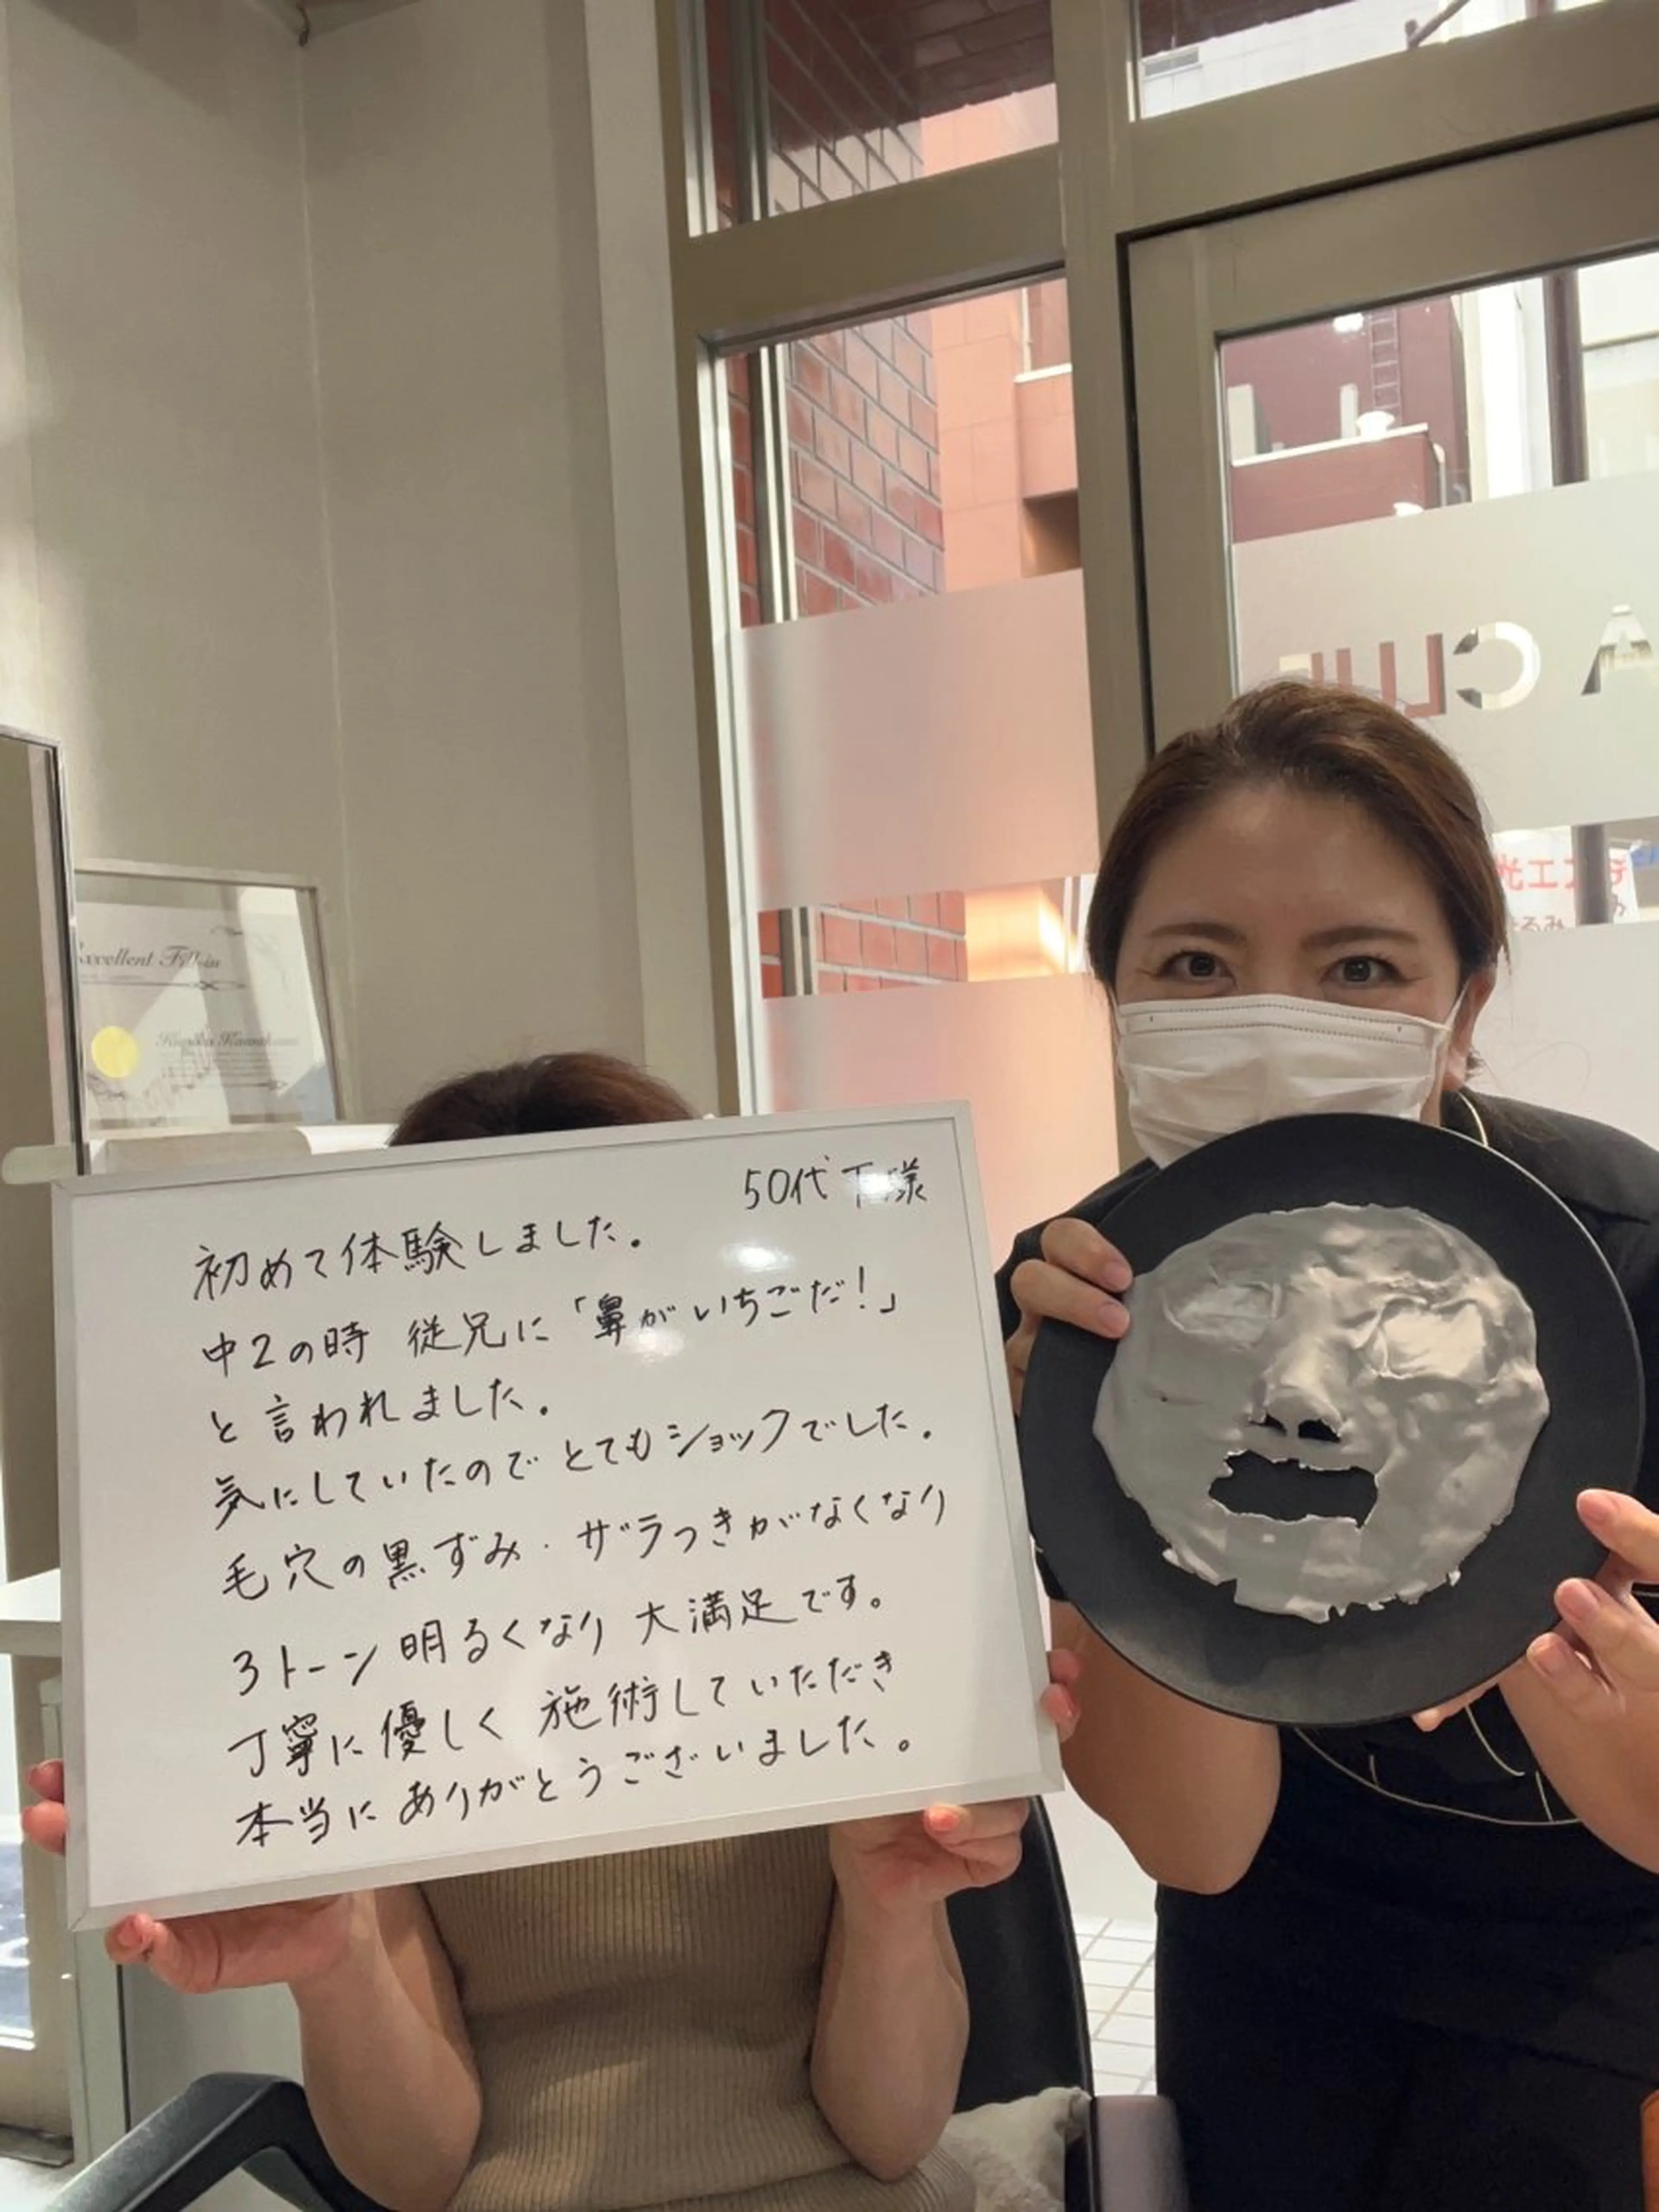 50代 様
初めて体験しました。
中2の時 従兄に「鼻がいちごだ!」
と言われました。
気にしていたので とてもショックでした。
毛穴の黒ずみ・ザラつきがなくなり
3トーン明るくなり 大満足です。
丁寧に優しく 施術していただき
本当にありがとうございました。
Excellent Fill-in
A CLUE
光エステ